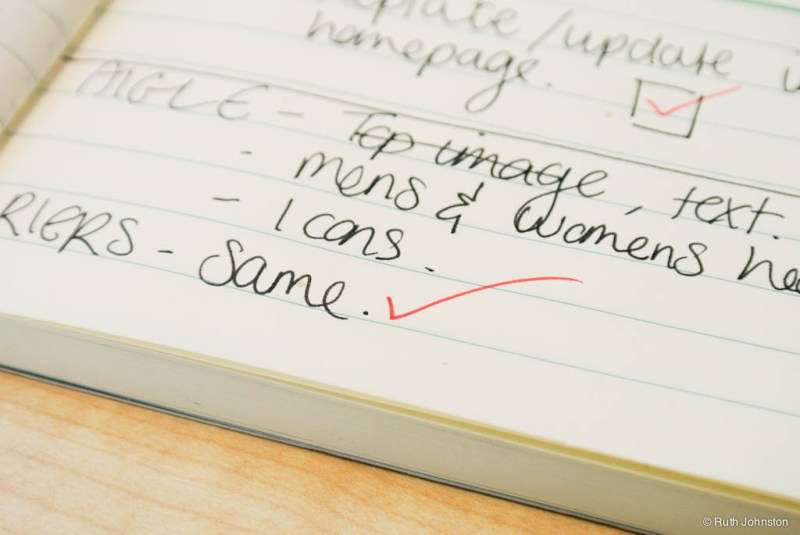 /update
homepage.
AIGLE - Top image, text.
- mens & womens
- Icons.
RIERS - Same.
© Ruth Johnston